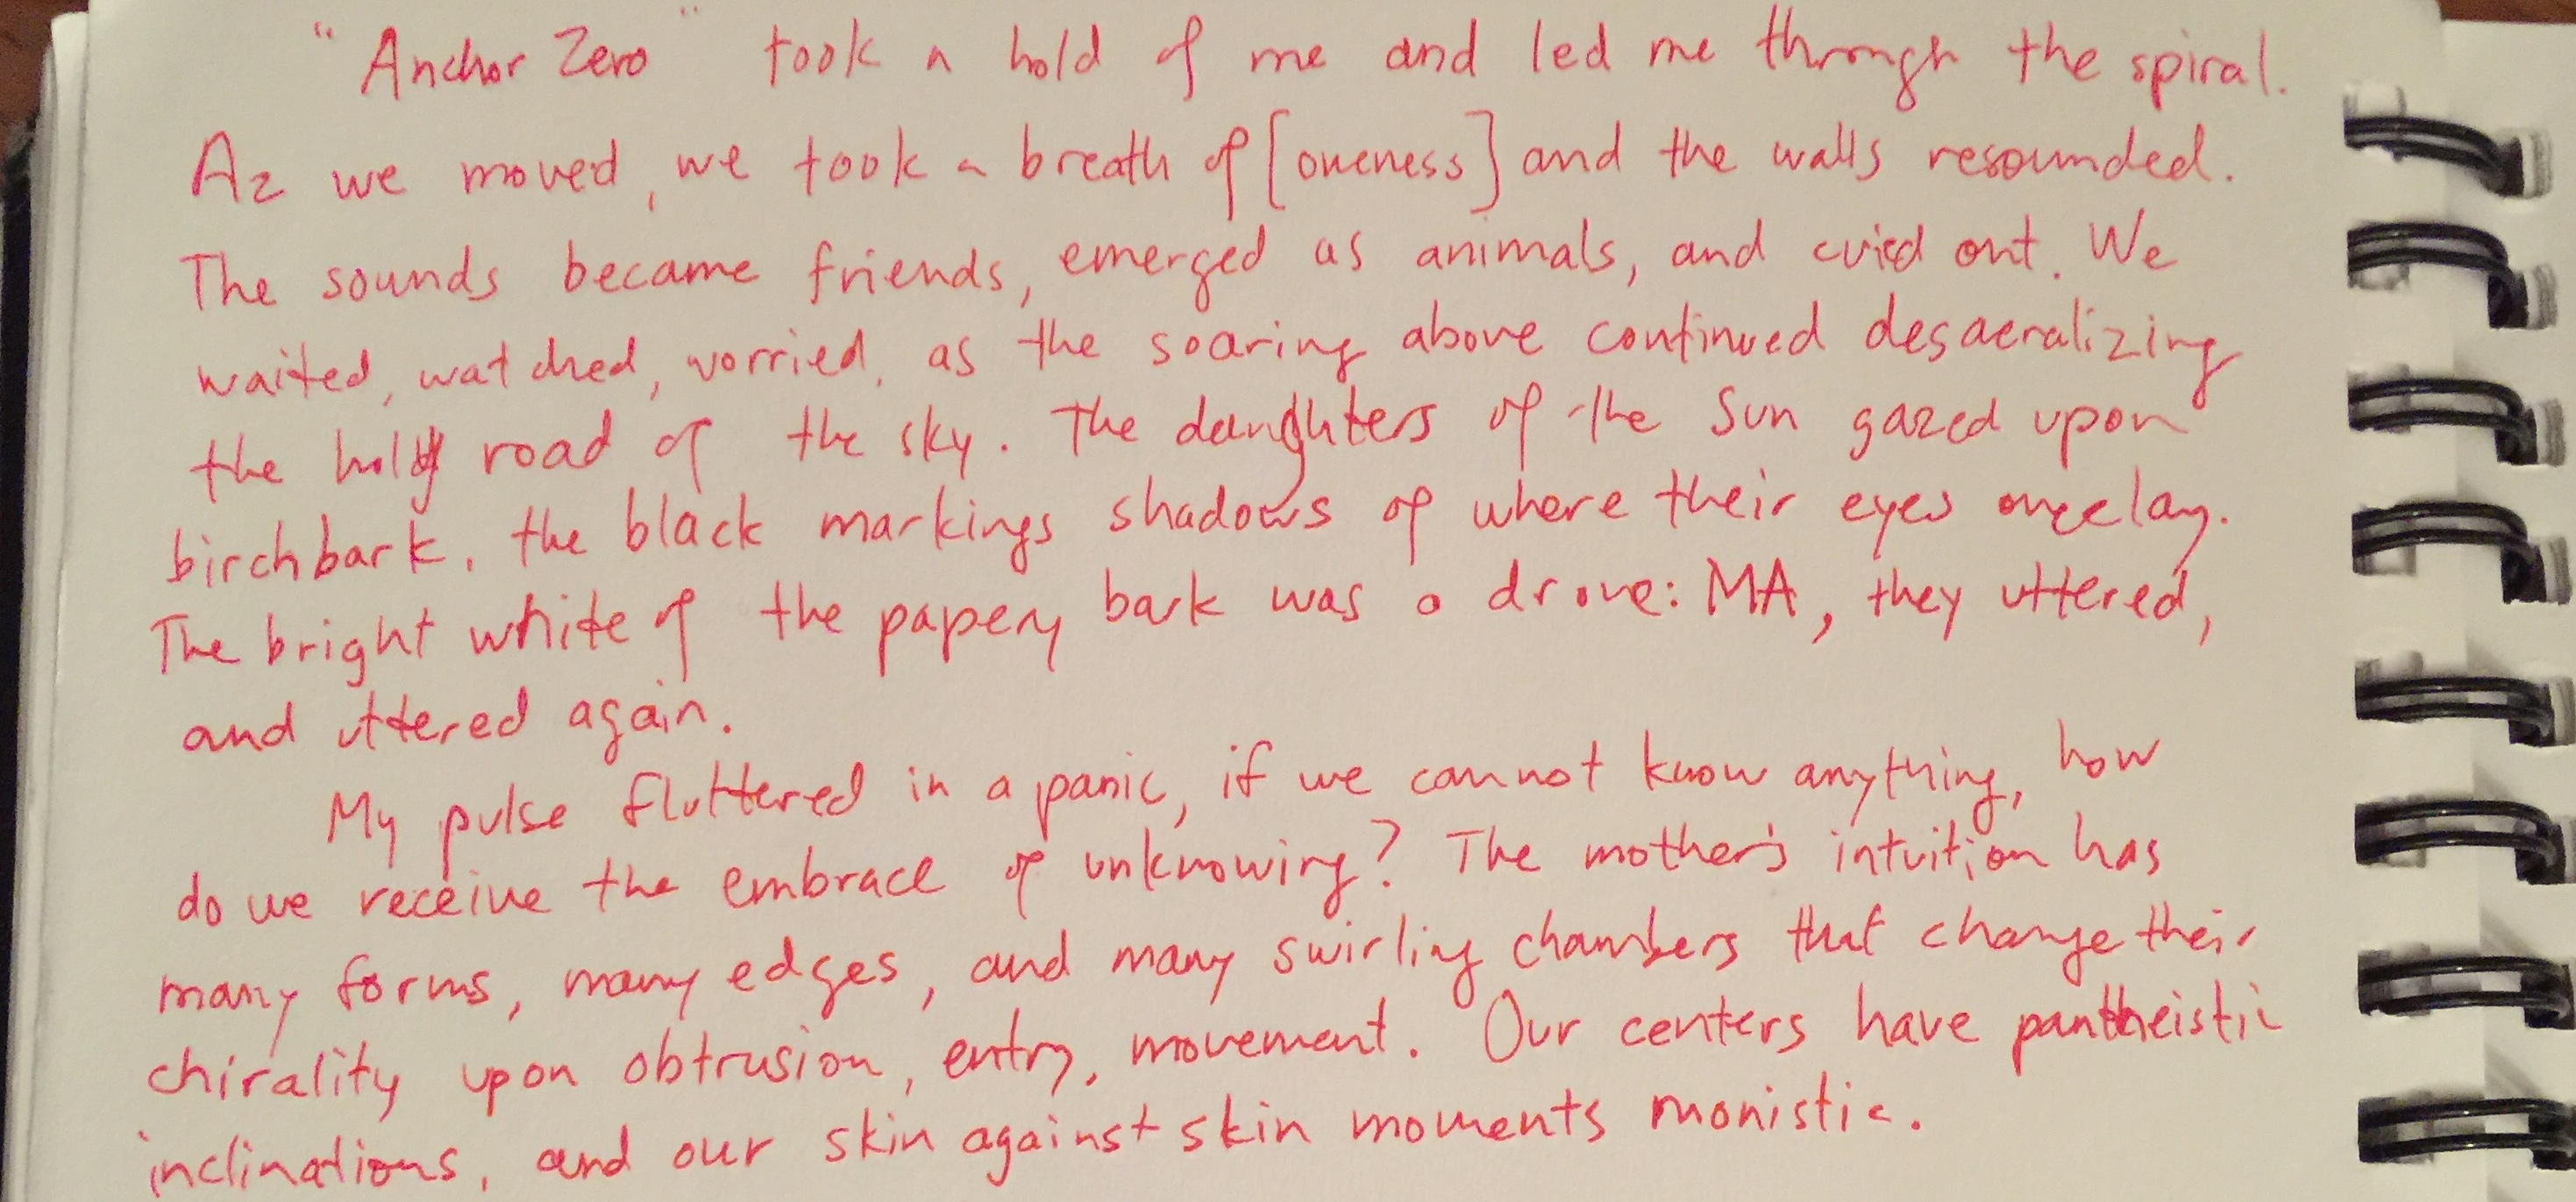 "Anchor Zero" took a hold of me and led me through the spiral.
Az we moved, we took a breath of [oneness] and the walls resounded.
The sounds became friends, emerged as animals, and cried out. We
waited, watched, worried, as the soaring above continued desacralizing
the holy road of the sky. The daughters of the Sun gazed upon
birchbark, the black markings shadows of where their eyes once lay.
The bright white of the papery bark was a drone: MA, they uttered,
and uttered again.
My pulse fluttered in a panic, if we cannot know anything, how
do we receive the embrace of unknowing? The mother's intuition has
many forms, many edges, and many swirling chambers that change their
chirality upon obtrusion, entry, movement. Our centers have pantheistic
inclinations, and our skin against skin moments monistic.